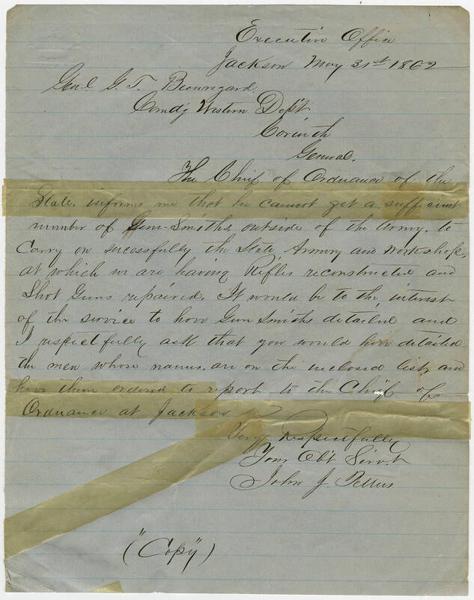 Executive Office
Jackson May 31st 1862
Genl G. T. Beauregard
Comdg Western Dept
Corinth
General.
The Chief of Ordnance of the
State informs me that he cannot get a sufficient
number of Gun-Smiths outside of the Army, to
Carry on successfully the State Armory and Workshops,
at which we are having Rifles reconstructed and
Shot Guns repaired. It would be to the interest
of the service to have Gun Smiths detailed and
I respectfully ask that you would have detailed
the men whose names are on the inclosed list, and
have them ordered to report to the Chief of
Ordnance at Jackson
Very Respectfully
Your Obt Servt
John J. Pettus
("Copy")